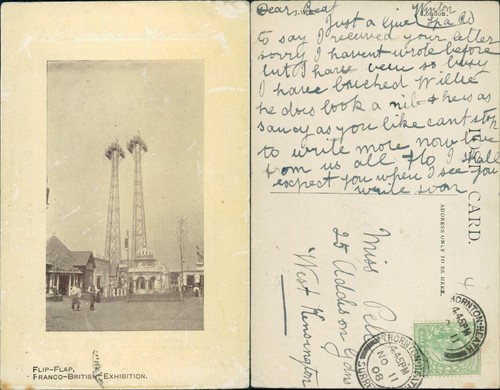 FLIP-FLAP,
FRANCO-BRITISH EXHIBITION.
Dear Beat
Winton
Spa Rd
Just a line
to say I received your letter
sorry I havent wrote before
but I have been so busy
I have bricked Willie
he does look a nib & he is as
saucy as you like cant stop
to write more now love
from us all Flo I shall
expect you when I see you
write soon
CARD.
ADDRESS ONLY TO BE HERE.
4
Miss
25 Addison Gdns
West Kensington
THORNTON HEATH
4.45PM
NO 11
08
THORNTON HEATH
4.45PM
11